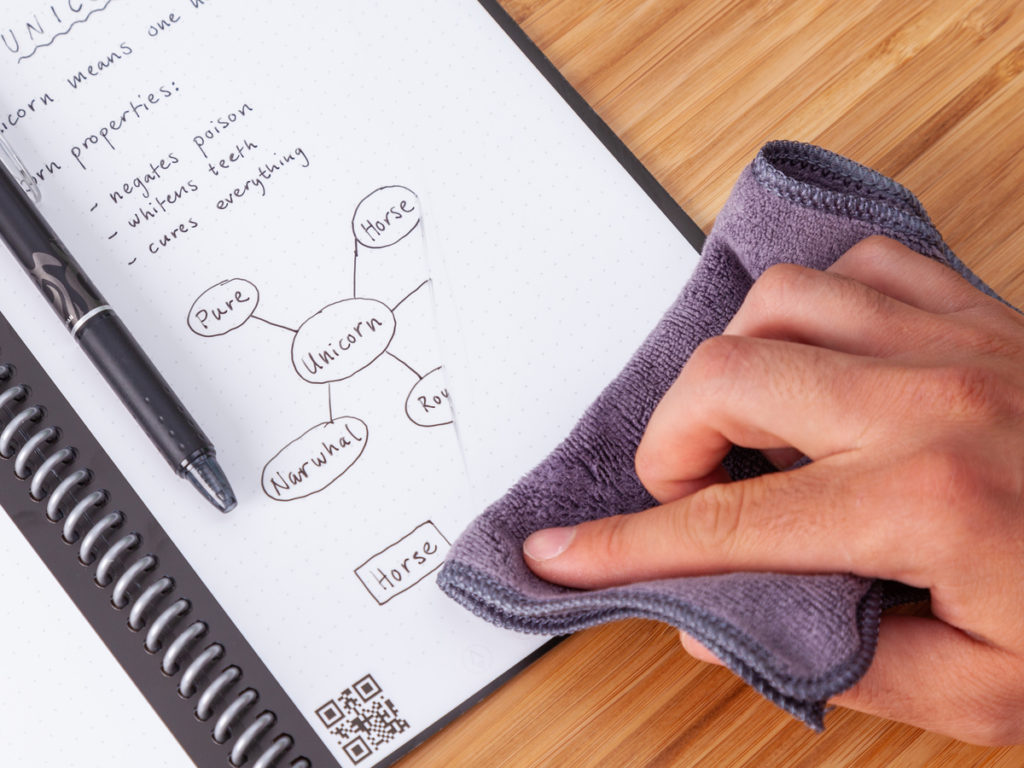 UNICO
nicorn means one h
orn properties:
- negates poison
- whitens teeth
- cures everything
Horse
Pure
Unicorn
Rou
Narwhal
Horse